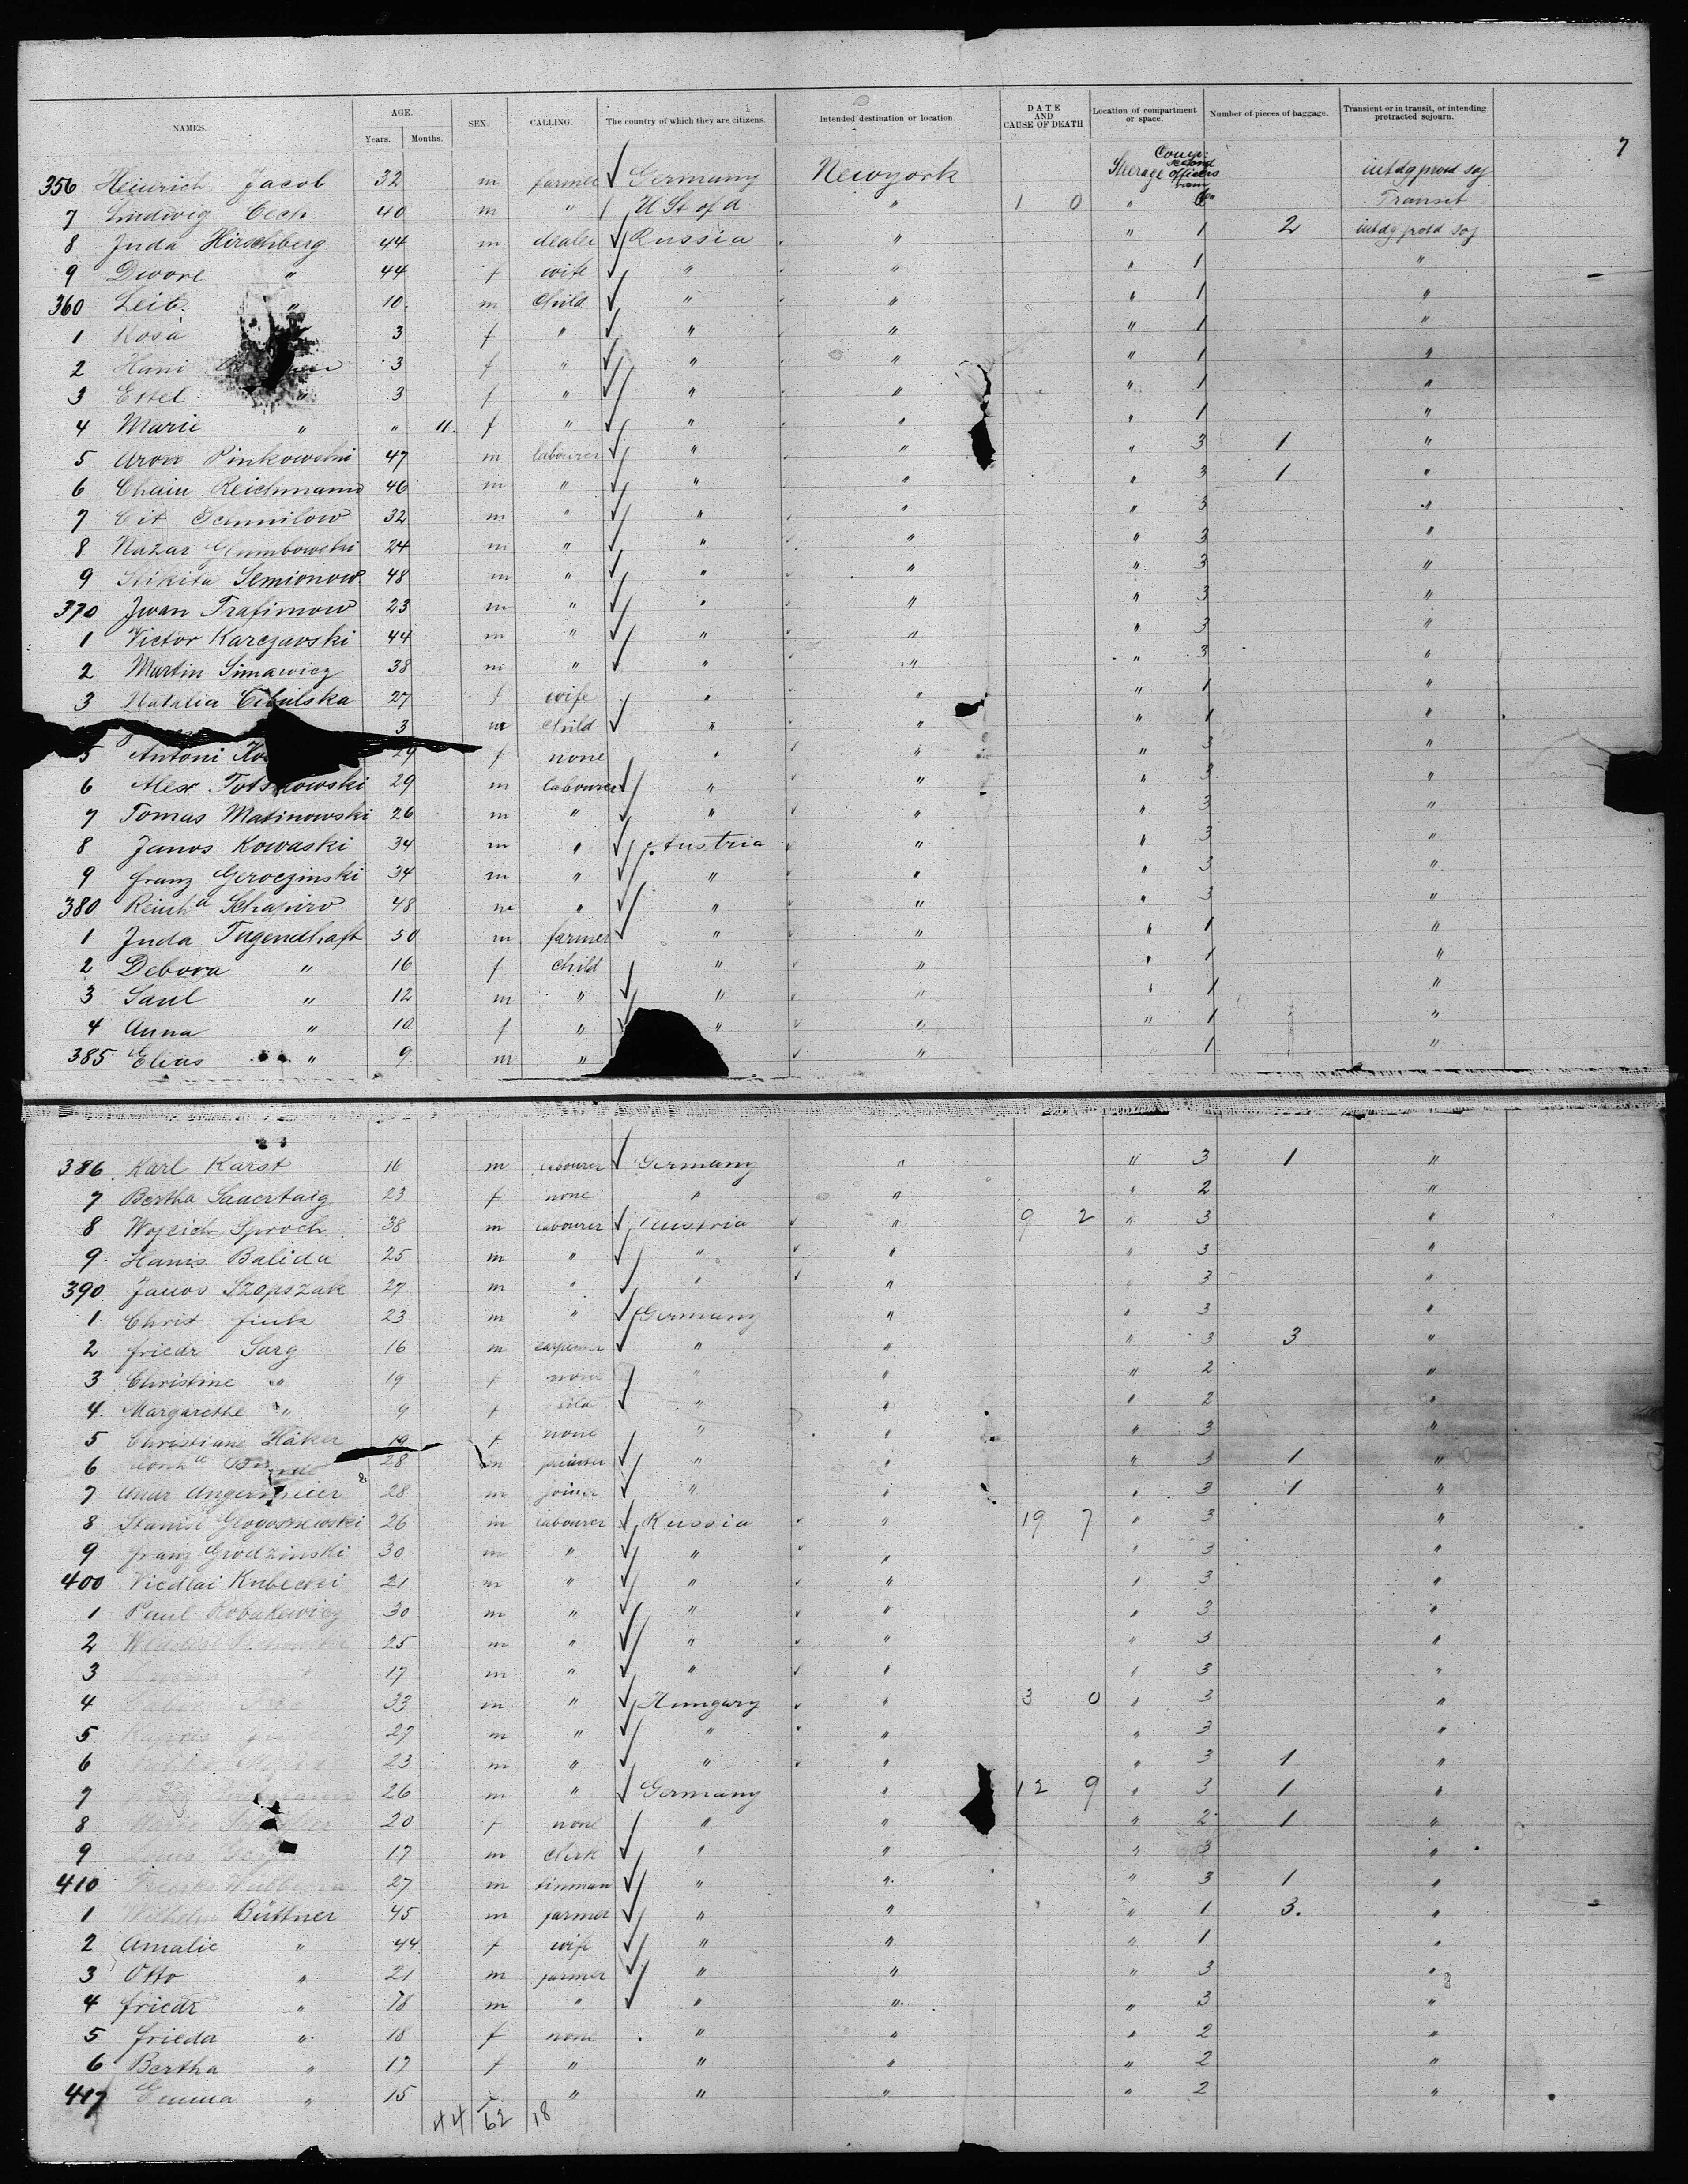 7
NAMES. AGE. Years. Months. SEX. CALLING. The country of which they are citizens. Intended destination or location. DATE AND CAUSE OF DEATH Location of compartment or space. Number of pieces of baggage. Transient or in transit, or intending protracted sojourn.
356 Heinrich Jacob 32 m farmer ✓ Germany Newyork Steerage intdg protd soj
7 Ludwig Cech 40 m " / U St of A " 1 0 " Transit
8 Juda Hirschberg 44 m dealer ✓ Russia " " 1 2 intdg protd soj
9 Dwore " 44 f wife ✓ " " " 1 "
360 Leib " 10 m Child ✓ " " " 1 "
1 Rosa 3 f " ✓ " " " 1 "
2 Hani 3 f " ✓ " " " 1 "
3 Estel " 3 f " ✓ " " " 1 "
4 Marie " " 11. f " ✓ " " " 1 "
5 Aron Pinkowski 47 m labourer ✓ " " " 3 1 "
6 Chaim Reichmann 46 m " ✓ " " " 3 1 "
7 Schmilow 32 m " ✓ " " " 3 "
8 Nazar Glumbowski 24 m " ✓ " " " 3 "
9 Nikita Semionow 48 m " ✓ " " " 3 "
370 Jwan Trafimow 23 m " ✓ " " " 3 "
1 Victor Karczavski 44 m " ✓ " " " 3 "
2 Martin Simawicz 38 m " ✓ " " " 3 "
3 Natalia Cibulska 27 f wife " " " 1 "
3 m Child ✓ " " " 1 "
5 Antoni 29 f none " " " 3 "
6 Alex 29 m labourer ✓ " " " 3 "
7 Tomas Matinowski 26 m " ✓ " " " 3 "
8 Janos Kowaski 34 m " ✓ Austria " " 3 "
9 Franz Geroczinski 34 m " ✓ " " " 3 "
380 Reinhd Schapiro 48 m " ✓ " " " 3 "
1 Juda Tugendhaft 50 m farmer ✓ " " " 1 "
2 Debora " 16 f child " " " 1 "
3 Saul " 12 m " ✓ " " " 1 "
4 Anna " 10 f " ✓ " " " 1 "
385 Elias " 9 m " " 1 "
386 Karl Karst 16 m labourer ✓ Germany " " 3 1 "
7 Bertha Sauertaig 23 f none " " " 2 "
8 Wojcich Sproch 38 m labourer ✓ Austria " 9 2 " 3 "
9 Hanis Balida 25 m " ✓ " " " 3 "
390 Janos Szopszak 27 m " ✓ " " " 3 "
1 Christ Fink 23 m " ✓ Germany " " 3 "
2 Friedr Sarg 16 m carpenter ✓ " " " 3 3 "
3 Christine " 19 f none " " " 2 "
4 Margarethe " 9 f ✓ " " " 2 "
5 Christiane Häker 19 f none " " " 3 "
6 28 m ✓ " " " 3 1 "
7 Andr Angermeier 28 m joiner ✓ " " " 3 1 "
8 Stanisl 26 m labourer ✓ Russia " 19 7 " 3 "
9 Franz Grodzinski 30 m " ✓ " " " 3 "
400 Kubecki 21 m " ✓ " " " 3 "
1 Paul Robakewicz 30 m " ✓ " " " 3 "
2 Wladisl 25 m " ✓ " " " 3 "
3 17 m " ✓ " " " 3 "
4 33 m " ✓ Hungary " 3 0 " 3 "
5 27 m " ✓ " " " 3 "
6 23 m " ✓ " " " 3 1 "
7 26 m " ✓ Germany " 12 9 " 3 1 "
8 Marie 20 f none " " " 2 1 "
9 Louis 17 m clerk ✓ " " " 3 "
410 27 m tinman ✓ " " " 3 1 "
1 Wilhelm Büttner 45 m farmer ✓ " " " 1 3. "
2 Amalie " 44 f wife ✓ " " " 1 "
3 Otto " 21 m farmer ✓ " " " 3 "
4 Friedr " 18 m " ✓ " " " 3 "
5 Frieda " 18 f none " " " 2 "
6 Bertha " 17 f " " " " 2 "
417 Emma " 15 f " " " " 2 "
44 62 18